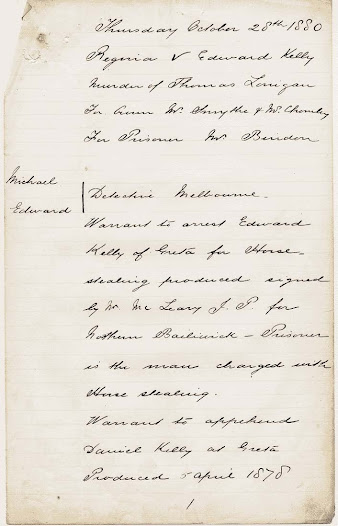 Thursday October 28th 1880
Regina V Edward Kelly
Murder of Thomas Lonigan
For Crown Mr. Smythe & Mr. Chomley
For Prisoner Mr Bindon
Michael
Edward
Detective Melbourne.
Warrant to arrest Edward
Kelly of Greta for Horse-
stealing produced signed
by Mr. McLeary J. P. for
Northern Bailiwick – Prisoner
is the man charged with
Horse stealing.
Warrant to apprehend
Daniel Kelly at Greta
Produced 5 April 1878
1